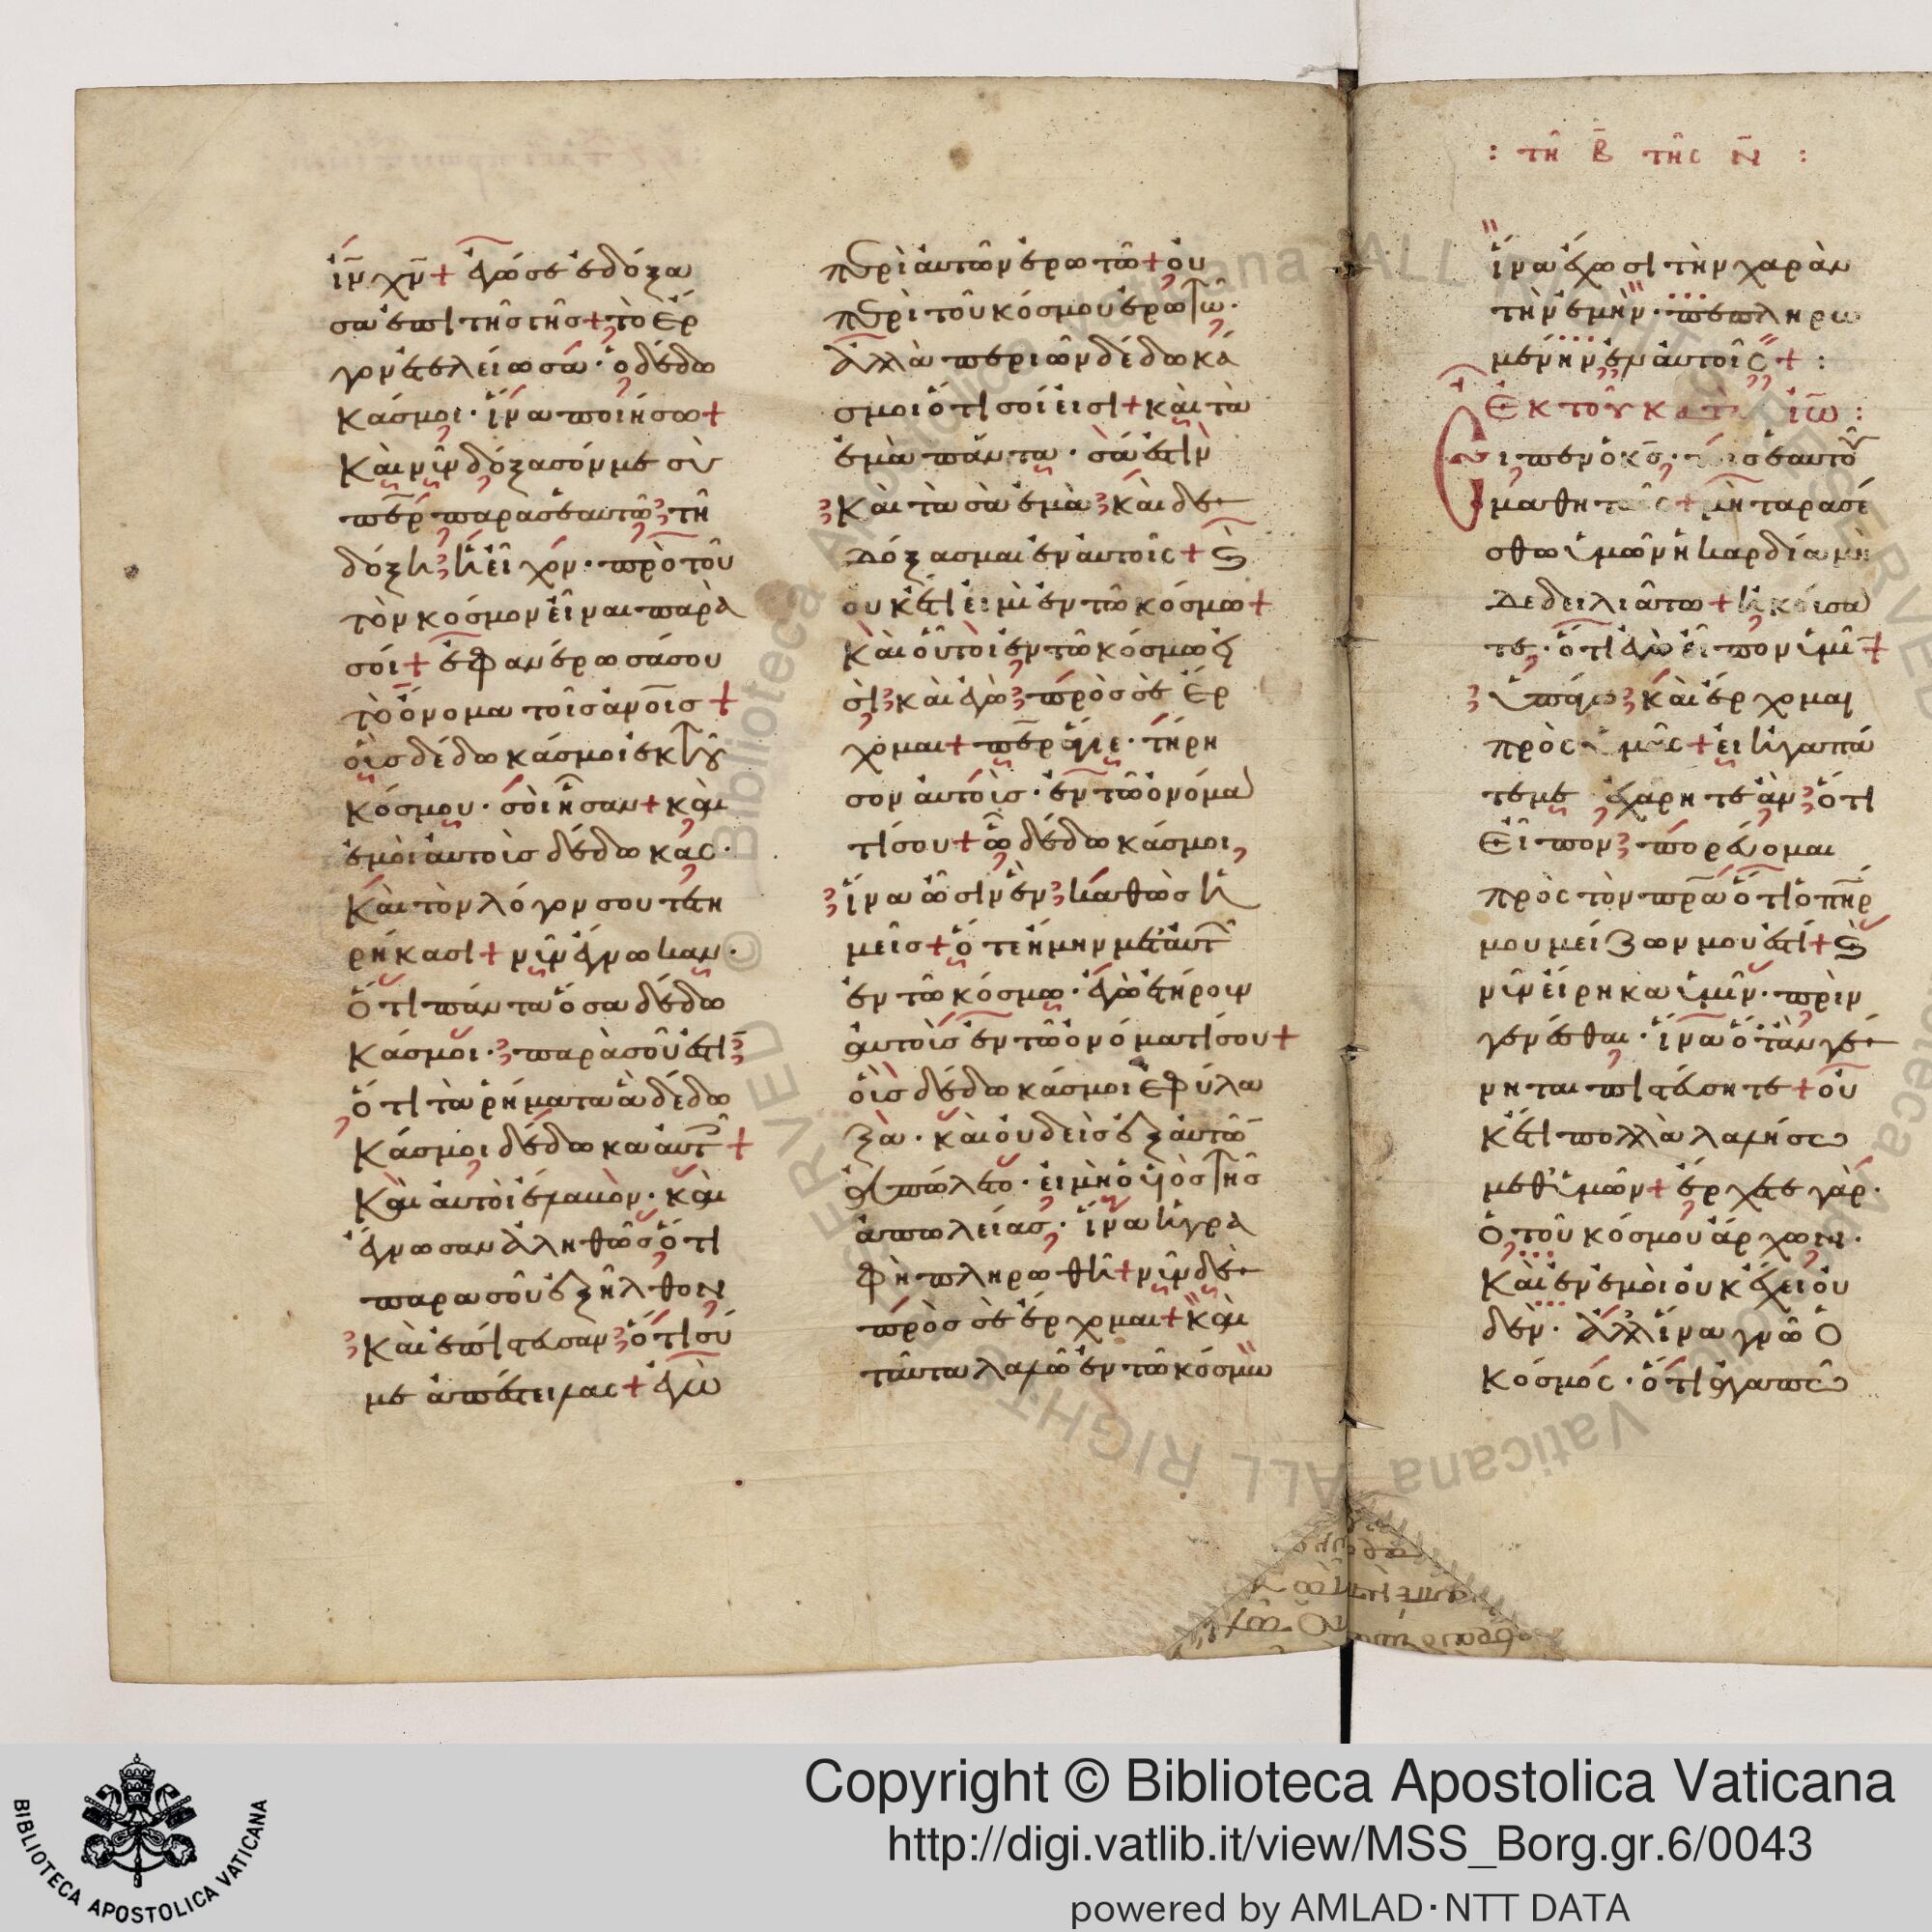 ἰν̄ χν̄ + ἐγώ σε ἐδόξα
σα ἐπὶ τῆς γῆς + τὸ ἔρ
γον ἐτελείωσα · ὃ δέδω
κάς μοι · ἵνα ποιήσω +
καὶ νῦν δόξασόν με σὺ
πε̄ρ παρὰ σεαυτῶ τῆ
δόξη ἧ εἶχον · πρὸ τοῦ
τὸν κόσμον εἶναι παρὰ
σοί + ἐφανέρωσά σου
τὸ ὄνομα τοῖς ἀνοῖς +
οὓς δέδωκάς μοι ἐκ τοῦ
κόσμου · σοὶ ἦσαν + καὶ
ἐμοὶ αὐτοὺς δέδωκας ·
καὶ τὸν λόγον σου τετη
ρήκασι + νῦν ἔγνωκαν ·
ὅτι πάντα ὅσα δέδω
κάς μοι · παρὰ σοῦ ἐστι
ὅτι τὰ ῥήματα ἃ δέδω
κάς μοι δέδωκα αὐτοῖς +
καὶ αὐτοὶ ἔλαβον · καὶ
ἔγνωσαν ἀληθῶς ὅτι
παρὰ σοῦ ἐξῆλθον
καὶ ἐπίστευσαν ὅτι σύ
με ἀπέστειλας + ἐγὼ
περὶ αὐτῶν ἐρωτῶ + οὐ
περὶ τοῦ κόσμου ἐρωτῶ ·
ἀλλὰ περὶ ὧν δέδωκά
ς μοι ὅτι σοί εἰσι + καὶ τὰ
ἐμὰ πάντα · σά ἐστιν
καὶ τὰ σὰ ἐμὰ καὶ δε
δόξασμαι ἐν αὐτοῖς + κ
οὐκέτι εἰμὶ ἐν τῶ κόσμω +
καὶ οὗτοι ἐν τῶ κόσμω εἰ
σὶ καὶ ἐγὼ πρὸς σὲ ἔρ
χομαι + πε̄ρ ἅγιε · τήρη
σον αὐτοὺς · ἐν τῶ ὀνόμα
τί σου + ὧ δέδωκάς μοι,
ἵνα ὦσιν ἓν καθὼς ἡ
μεῖς + ὅτε ἤμην μετ' αὐτῶν
ἐν τῶ κόσμω · ἐγὼ ἐτήρουν
αὐτοὺς ἐν τῶ ὀνόματί σου +
οὓς δέδωκάς μοι ἐφύλα
ξα · καὶ οὐδεὶς ἐξ αὐτῶ
ἀπώλετο · εἰ μὴ ὁ υἱὸς τῆς
ἀπωλείας · ἵνα ἡ γρα
φὴ πληρωθῆ + νῦν δὲ
πρὸς σὲ ἔρχομαι + καὶ
ταῦτα λαλῶ ἐν τῶ κόσμω
: τῆ Β̄ τῆς Ν̄ :
ἵνα ἔχωσι τὴν χαρὰν
τὴν ἐμὴν · πεπληρω
μένην ἐν αὐτοῖς + :
Ἐκ τοῦ κατὰ ἰω̄ :
Εἶπεν ὁ κς̄ · τοῖς ἑαυτοῦ
μαθηταῖς + μὴ ταρασέ
σθω ὑμῶν ἡ καρδία μὴ
δὲ δειλιάτω + ἠκούσα
τε · ὅτι ἐγὼ εἶπον ὑμῖν +
ὑπάγω καὶ ἔρχομαι
πρὸς ὑμᾶς + εἰ ἠγαπᾶ
τέ με ἐχάρητε ἂν ὅτι
εἶπον πορεύομαι
πρὸς τὸν πρ̄α ὅτι ὁ πη̄ρ
μου μείζων μου ἐστί + κ
νῦν εἴρηκα ὑμῖν · πρὶν
γενέσθαι · ἵνα ὅταν γέ
νηται πιστεύσητε + οὐ
κέτι πολλὰ λαλήσω
μεθ' ὑμῶν + ἔρχεται γὰρ ·
ὁ τοῦ κόσμου ἄρχων ·
καὶ ἐν ἐμοὶ οὐκ ἔχει οὐ
δέν · ἀλλ' ἵνα γνῶ ὁ
κόσμος · ὅτι ἀγαπῶ
Copyright © Biblioteca Apostolica Vaticana
http://digi.vatlib.it/view/MSS_Borg.gr.6/0043
powered by AMLAD·NTT DATA
BIBLIOTECA APOSTOLICA VATICANA